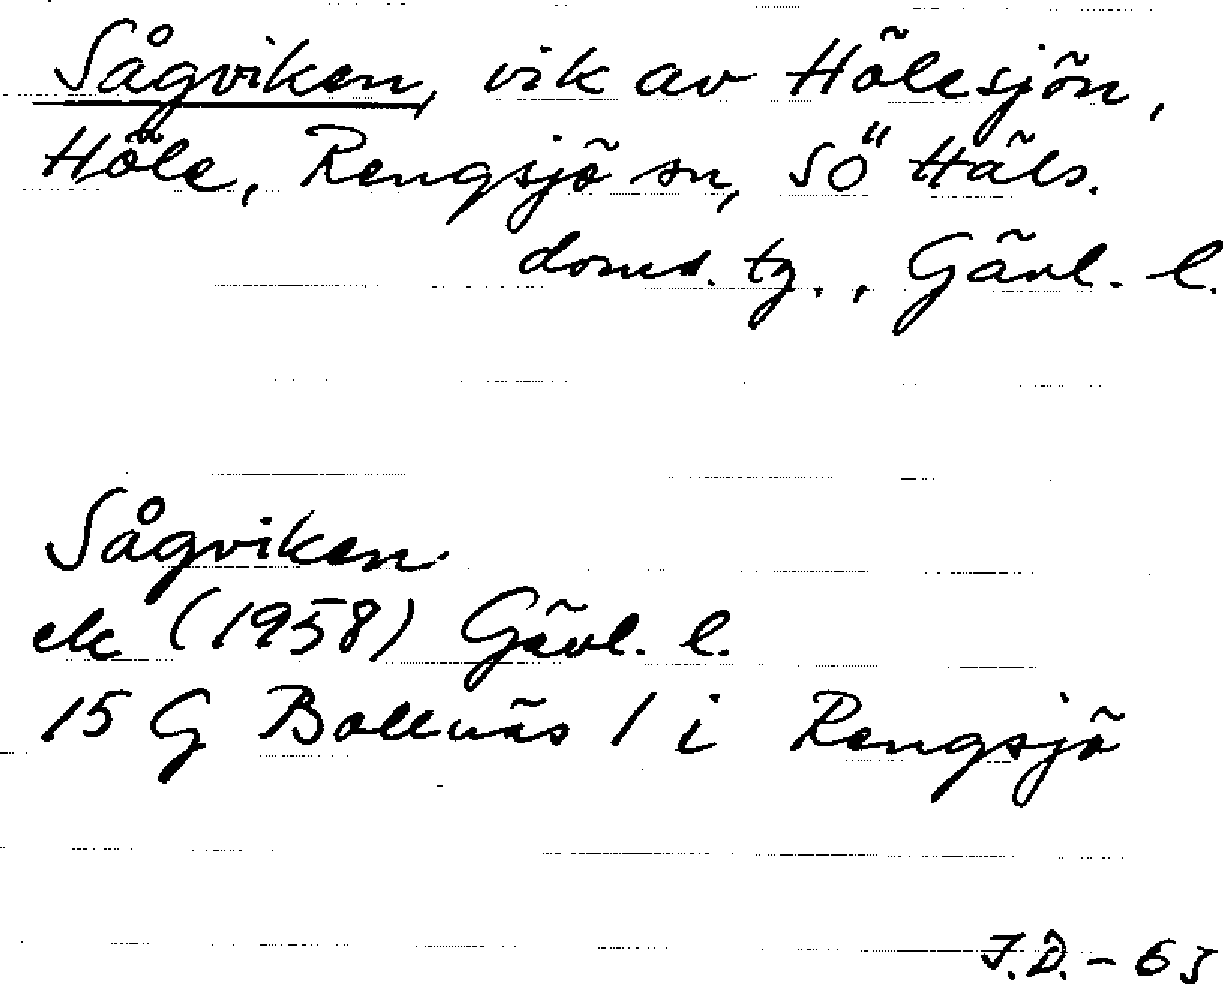 Sågviken, vik av Hölesjön,
Höle, Rengsjö sn, SÖ Häls.
doms. tg., Gävl. l.
Sågviken
ek (1958) Gävl. l.
15 G Bollnäs 1 i Rengsjö
J.D. - 63